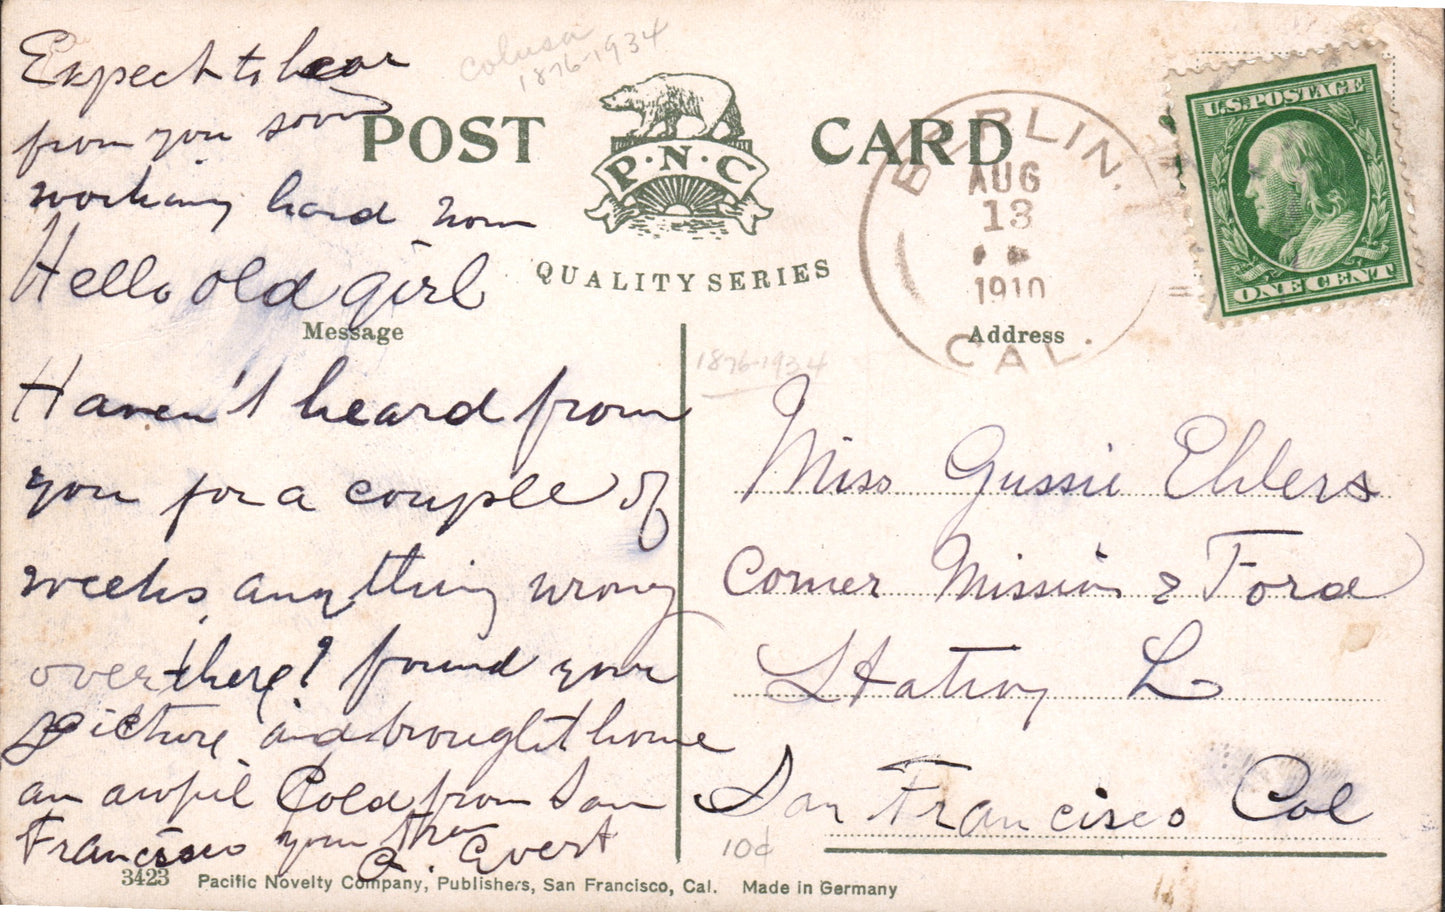 Expect to hear
from you soon
working hard now
Hello old girl
Message
Haven't heard from
you for a couple of
weeks, anything wrong
over there? found your
picture and brought home
an awful Cold from San
Francisco your
Evert
Colusa
1876-1934
POST CARD
P·N·C
QUALITY SERIES
BERLIN.
AUG
13
1910
CAL.
U.S. POSTAGE
ONE CENT
Address
1876-1934
Miss Gussie Ehlers
Corner Mission & Ford
Station L
San Francisco Cal
10¢
3423 Pacific Novelty Company, Publishers, San Francisco, Cal. Made in Germany